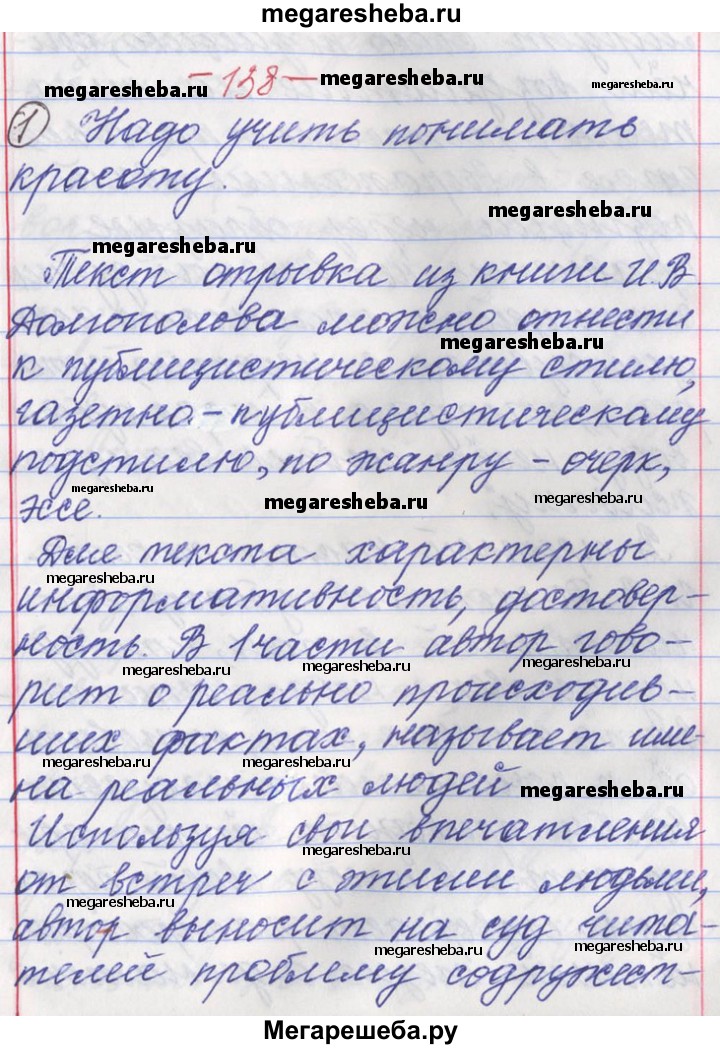 megaresheba.ru
- 138 -
megaresheba.ru
megaresheba.ru
megaresheba.ru
1 Надо учить понимать
красоту.
megaresheba.ru
megaresheba.ru
Текст отрывка из книги И.В.
Долгополова можно отнести
megaresheba.ru
к публицистическому стилю,
газетно-публицистическому
подстилю, по жанру - очерк,
megaresheba.ru
megaresheba.ru
megaresheba.ru
эссе.
Для текста характерны
megaresheba.ru
megaresheba.ru
информативность, достовер-
ность. В 1 части автор гово-
megaresheba.ru
megaresheba.ru
megaresheba.ru
рит о реально происходив-
ших фактах, называет име-
megaresheba.ru
megaresheba.ru
megaresheba.ru
на реальных людей
megaresheba.ru
Используя свои впечатления
megaresheba.ru
от встреч с этими людьми,
megaresheba.ru
автор выносит на суд чита-
megaresheba.ru
megaresheba.ru
телей проблему содружест-
Мегарешеба.ру